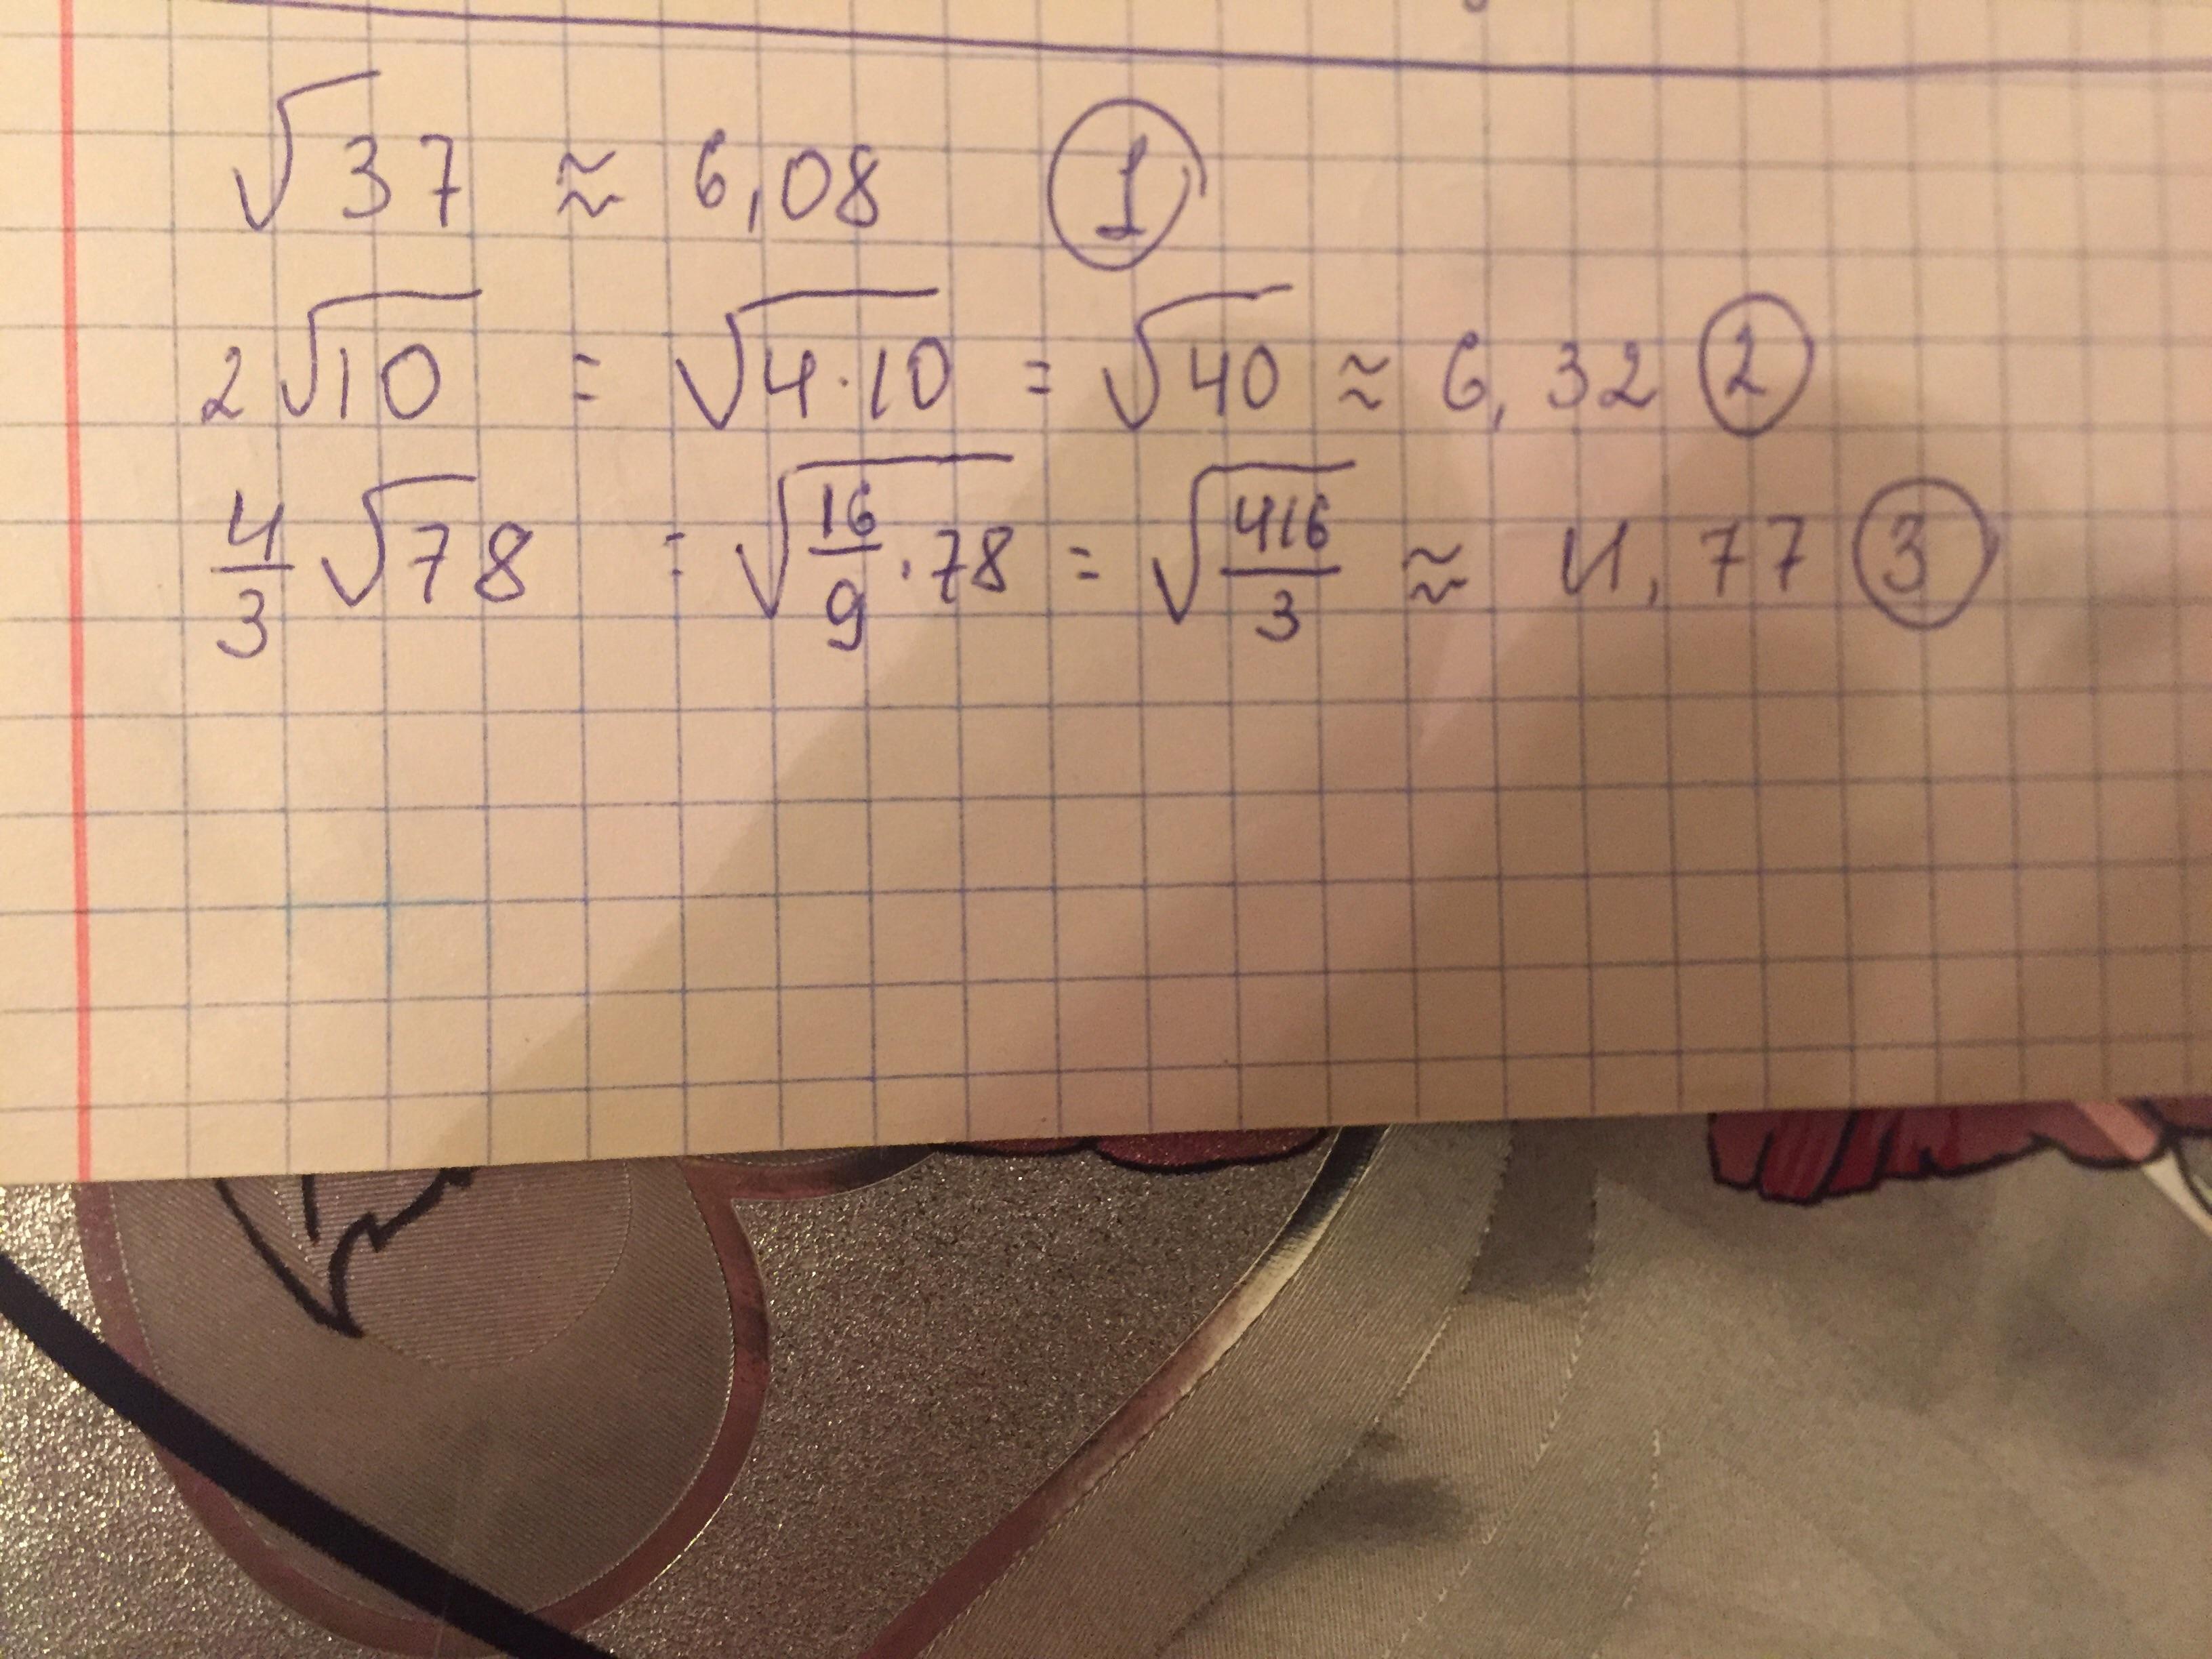 √37 ≈ 6,08 ①
2√10 = √4·10 = √40 ≈ 6,32 ②
4/3 √78 = √16/9 · 78 = √416/3 ≈ 11,77 ③